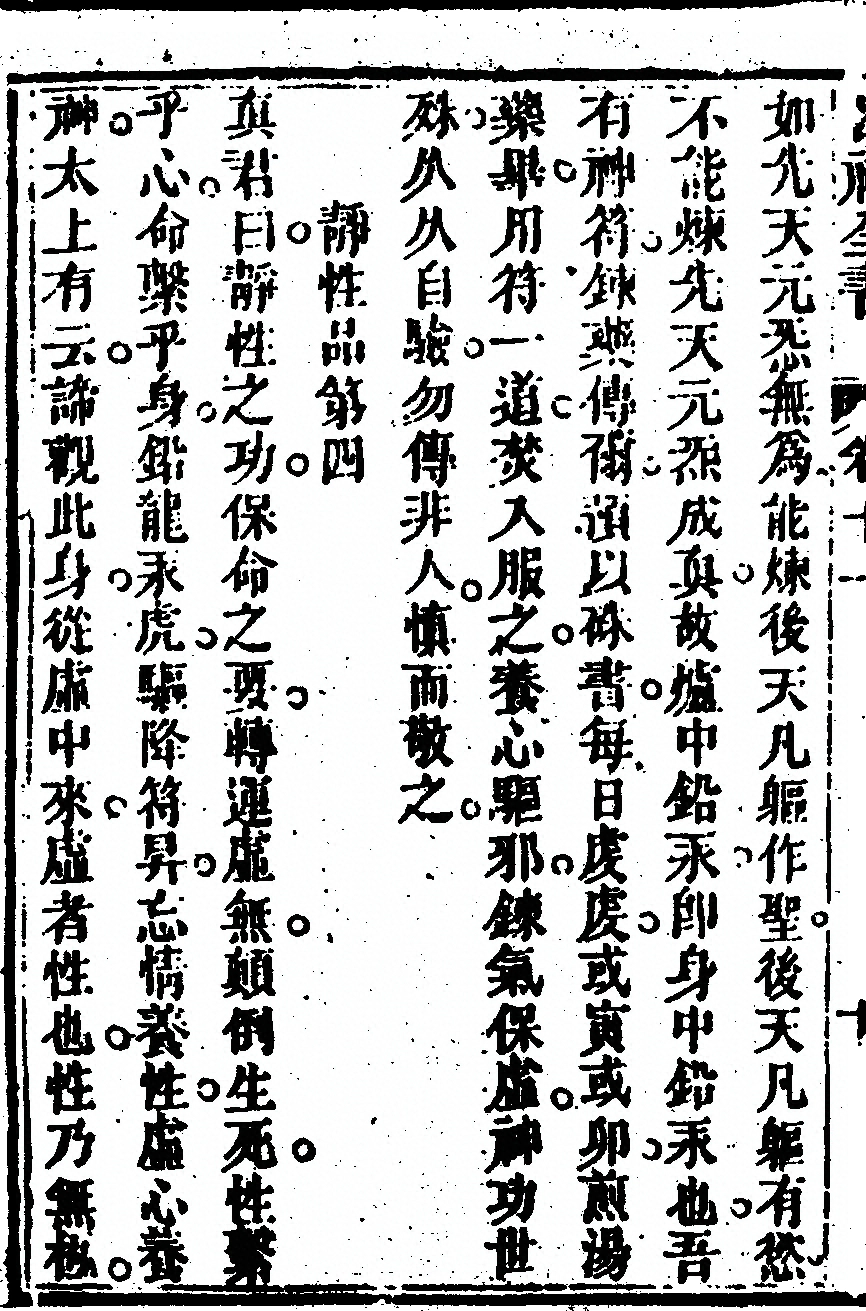 如先天元炁無為能煉後天凡軀作聖後天凡軀有慾
不能煉先天元炁成真故爐中鉛汞卽身中鉛汞也吾
有神符鍊藥傳爾頂以硃書每日虔虔或寅或卯煎湯
藥畢用符一道焚入服之養心驅邪鍊氣保虛神功世
殊從从自驗勿傳非人慎而敬之
靜性品第四
真君曰靜性之功保命之要轉運虛無顛倒生死性繫
乎心命繫乎身鉛龍汞虎驅降符昇忘情養性虛心養
神太上有云諦觀此身從虛中來虛者性也性乃無極